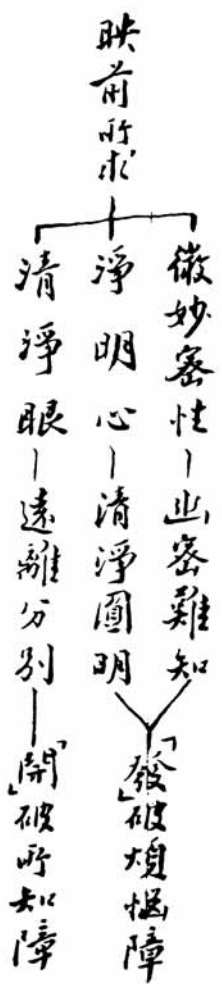 映前所求
微妙密性—幽密難知
淨明心—清淨圓明
「發」破煩惱障
清淨眼—遠離分別—「開」破所知障